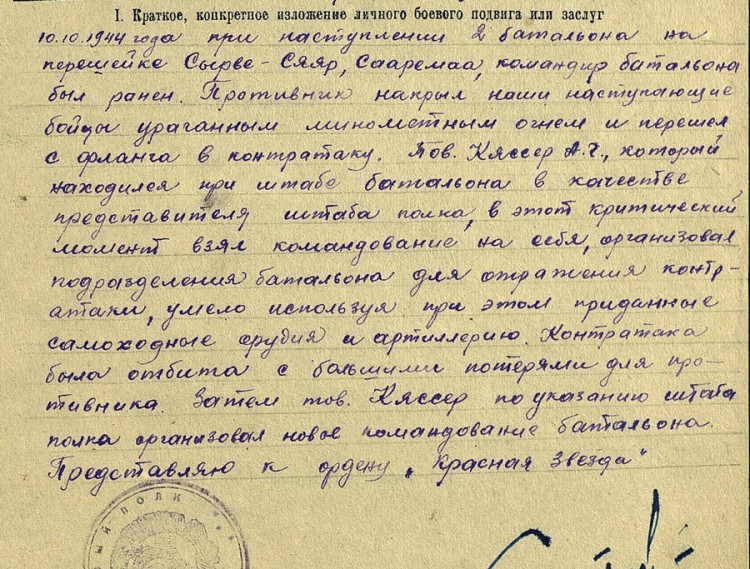 I. Краткое, конкретное изложение личного боевого подвига или заслуг
10.10.1944 года при наступлении 2 батальона на
перешейке Сырве-Сяяр, Сааремаа, командир батальона
был ранен. Противник накрыл наши наступающие
бойцы ураганным минометным огнем и перешел
с фланга в контратаку. Тов. Кяссер А.Г., который
находился при штабе батальона в качестве
представителя штаба полка, в этот критический
момент взял командование на себя, организовал
подразделения батальона для отражения контр-
атаки, умело используя при этом приданные
самоходные орудия и артиллерию. Контратака
была отбита с большими потерями для про-
тивника. Затем тов. Кяссер по указанию штаба
полка организовал новое командование батальона.
Представляю к ордену „Красная Звезда"
ВЫЙ ПОЛК